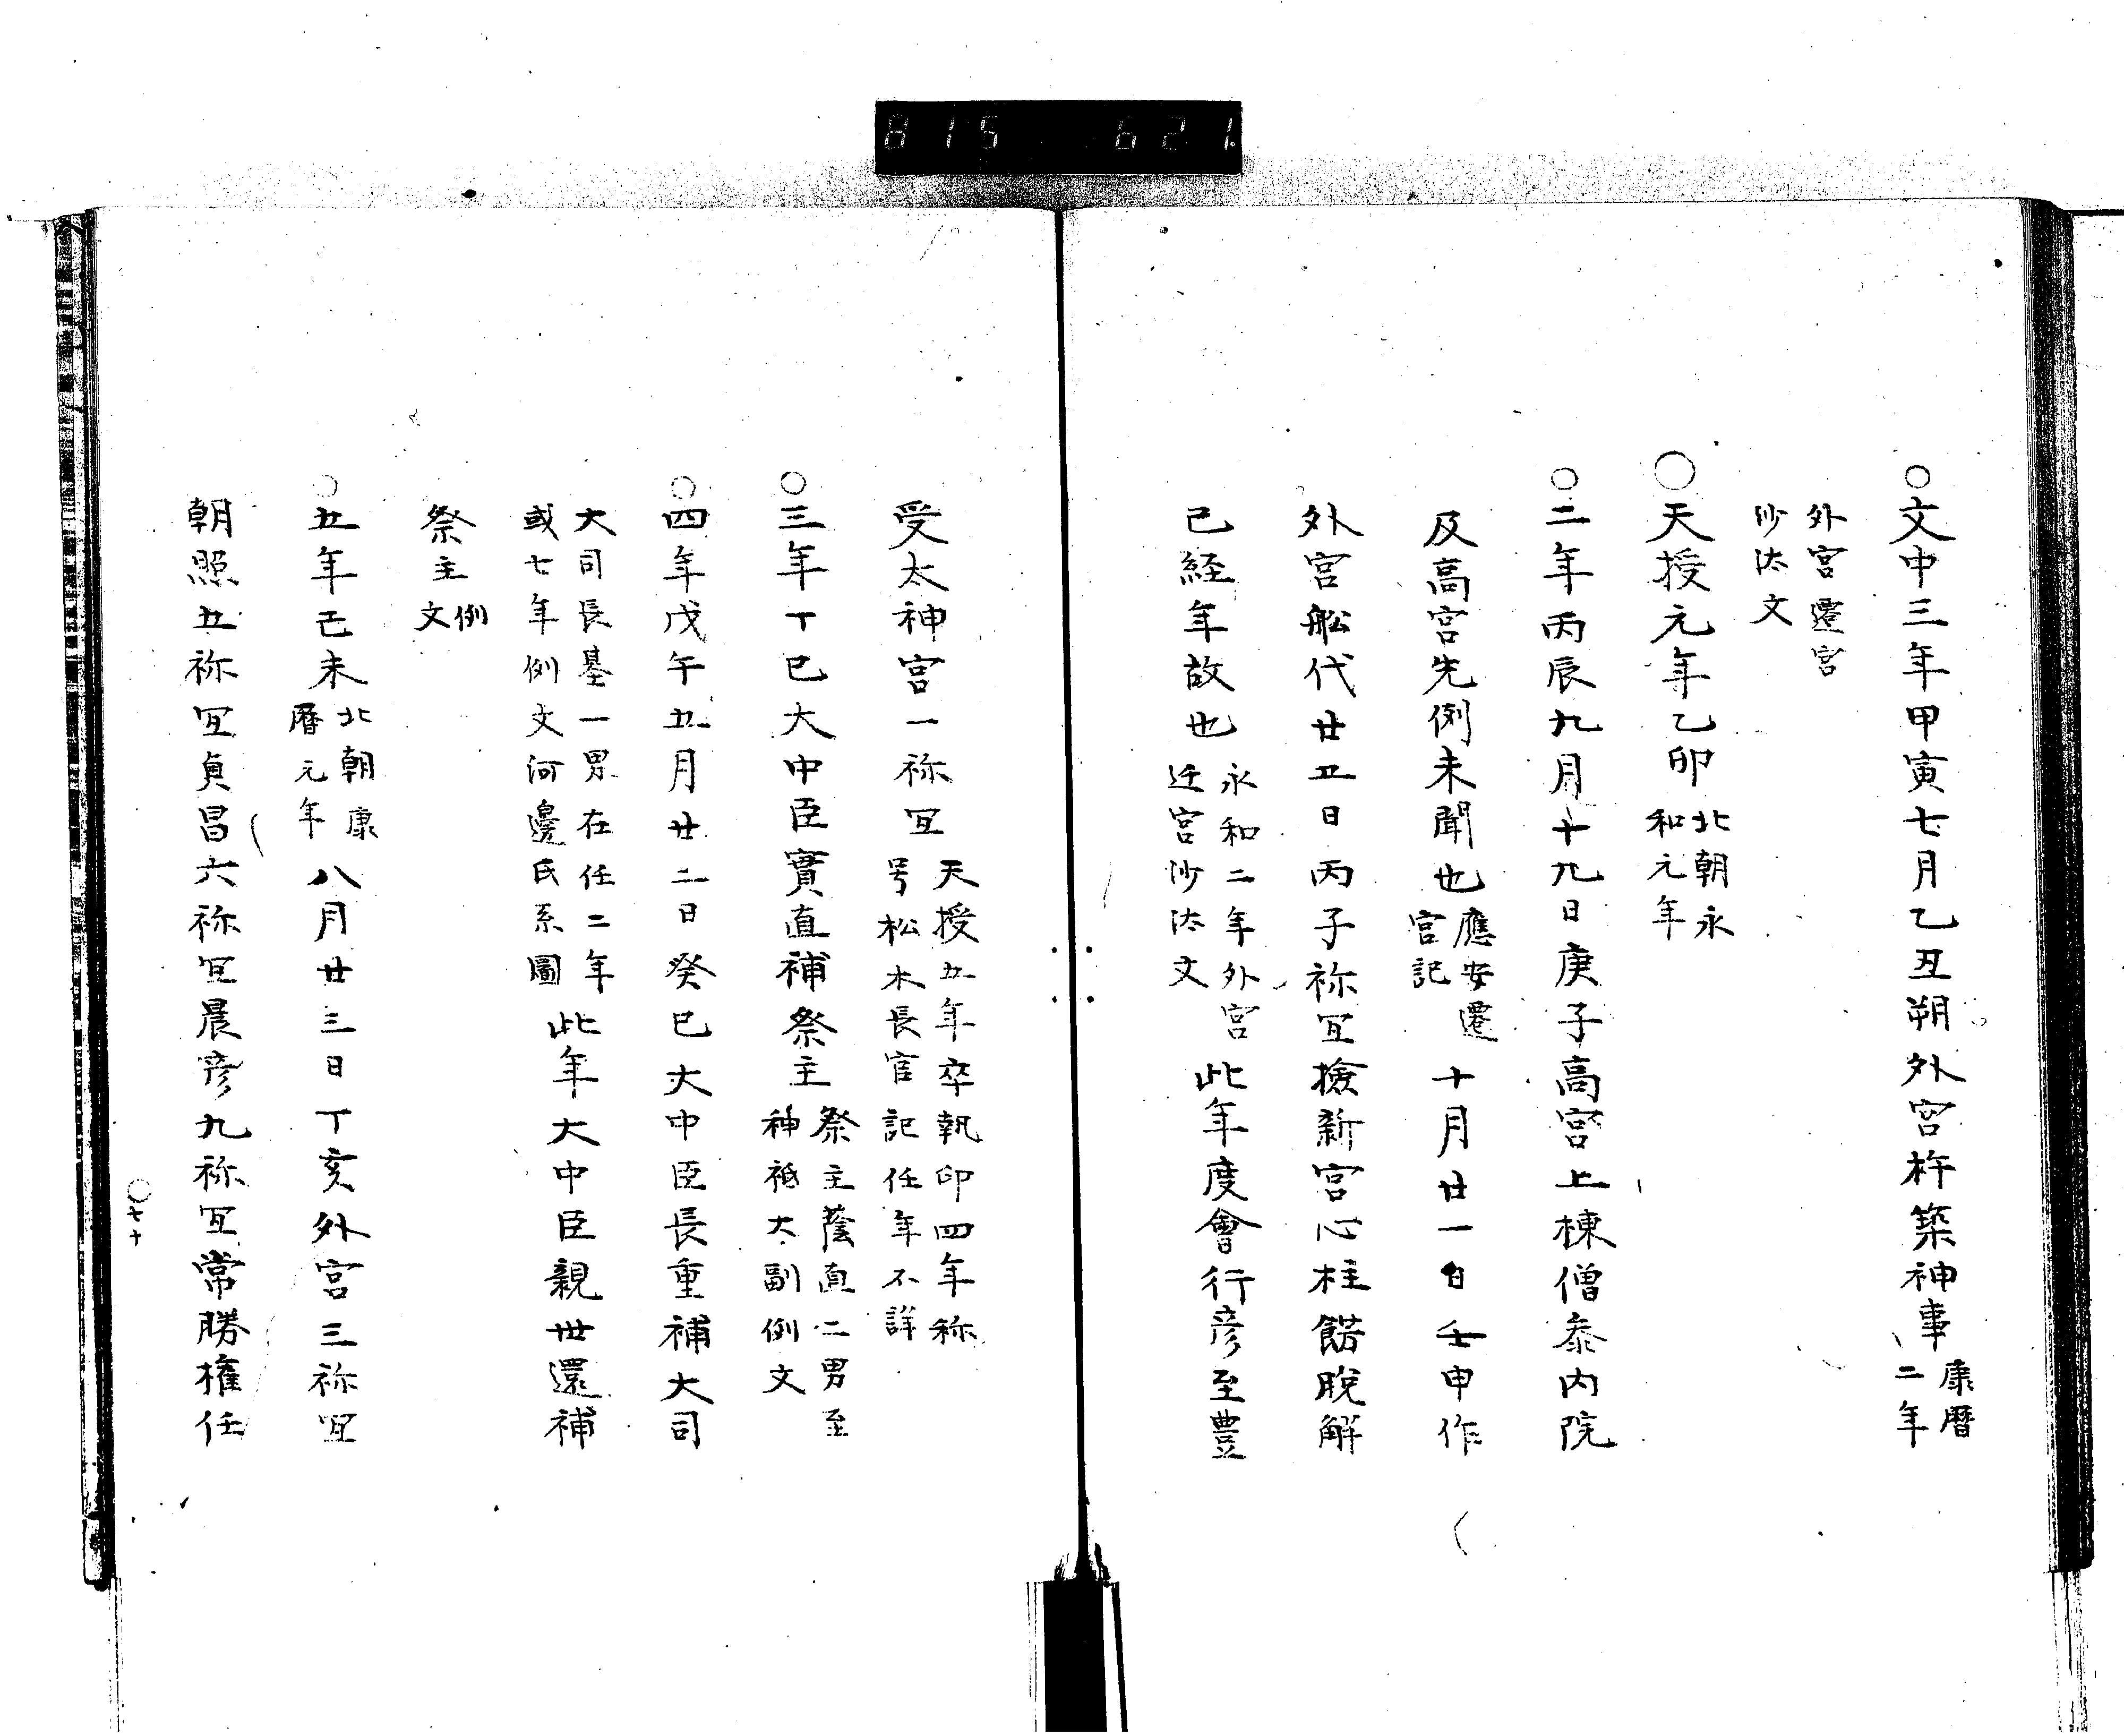 815 621.
○文中三年甲寅七月乙丑朔外宮杵築神事康暦二年
外宮遷宮
沙汰文
○天授元年乙卯北朝永和元年
○二年丙辰九月十九日庚子高宮上棟僧参内院
及高宮先例未聞也應安遷宮記十月廿一日壬申作
外宮舩代廿五日丙子祢宜撿新宮心柱餝脱解
已経年故也永和二年外宮迁宮沙汰文此年度會行彦至豊
受太神宮一祢宜天授五年卒執印四年称号松木長官記任年不詳
○三年丁巳大中臣實直補祭主祭主蔭直二男至神祇大副例文
○四年戊午五月廿二日癸巳大中臣長重補大司
大司長基一男在任二年或七年例文河邊氏系圖此年大中臣親世還補
祭主例文
○五年己未北朝康暦元年八月廿三日丁亥外宮三祢宜
朝照五祢宜貞昌六祢宜晨彦九祢宜常勝權任
○七十